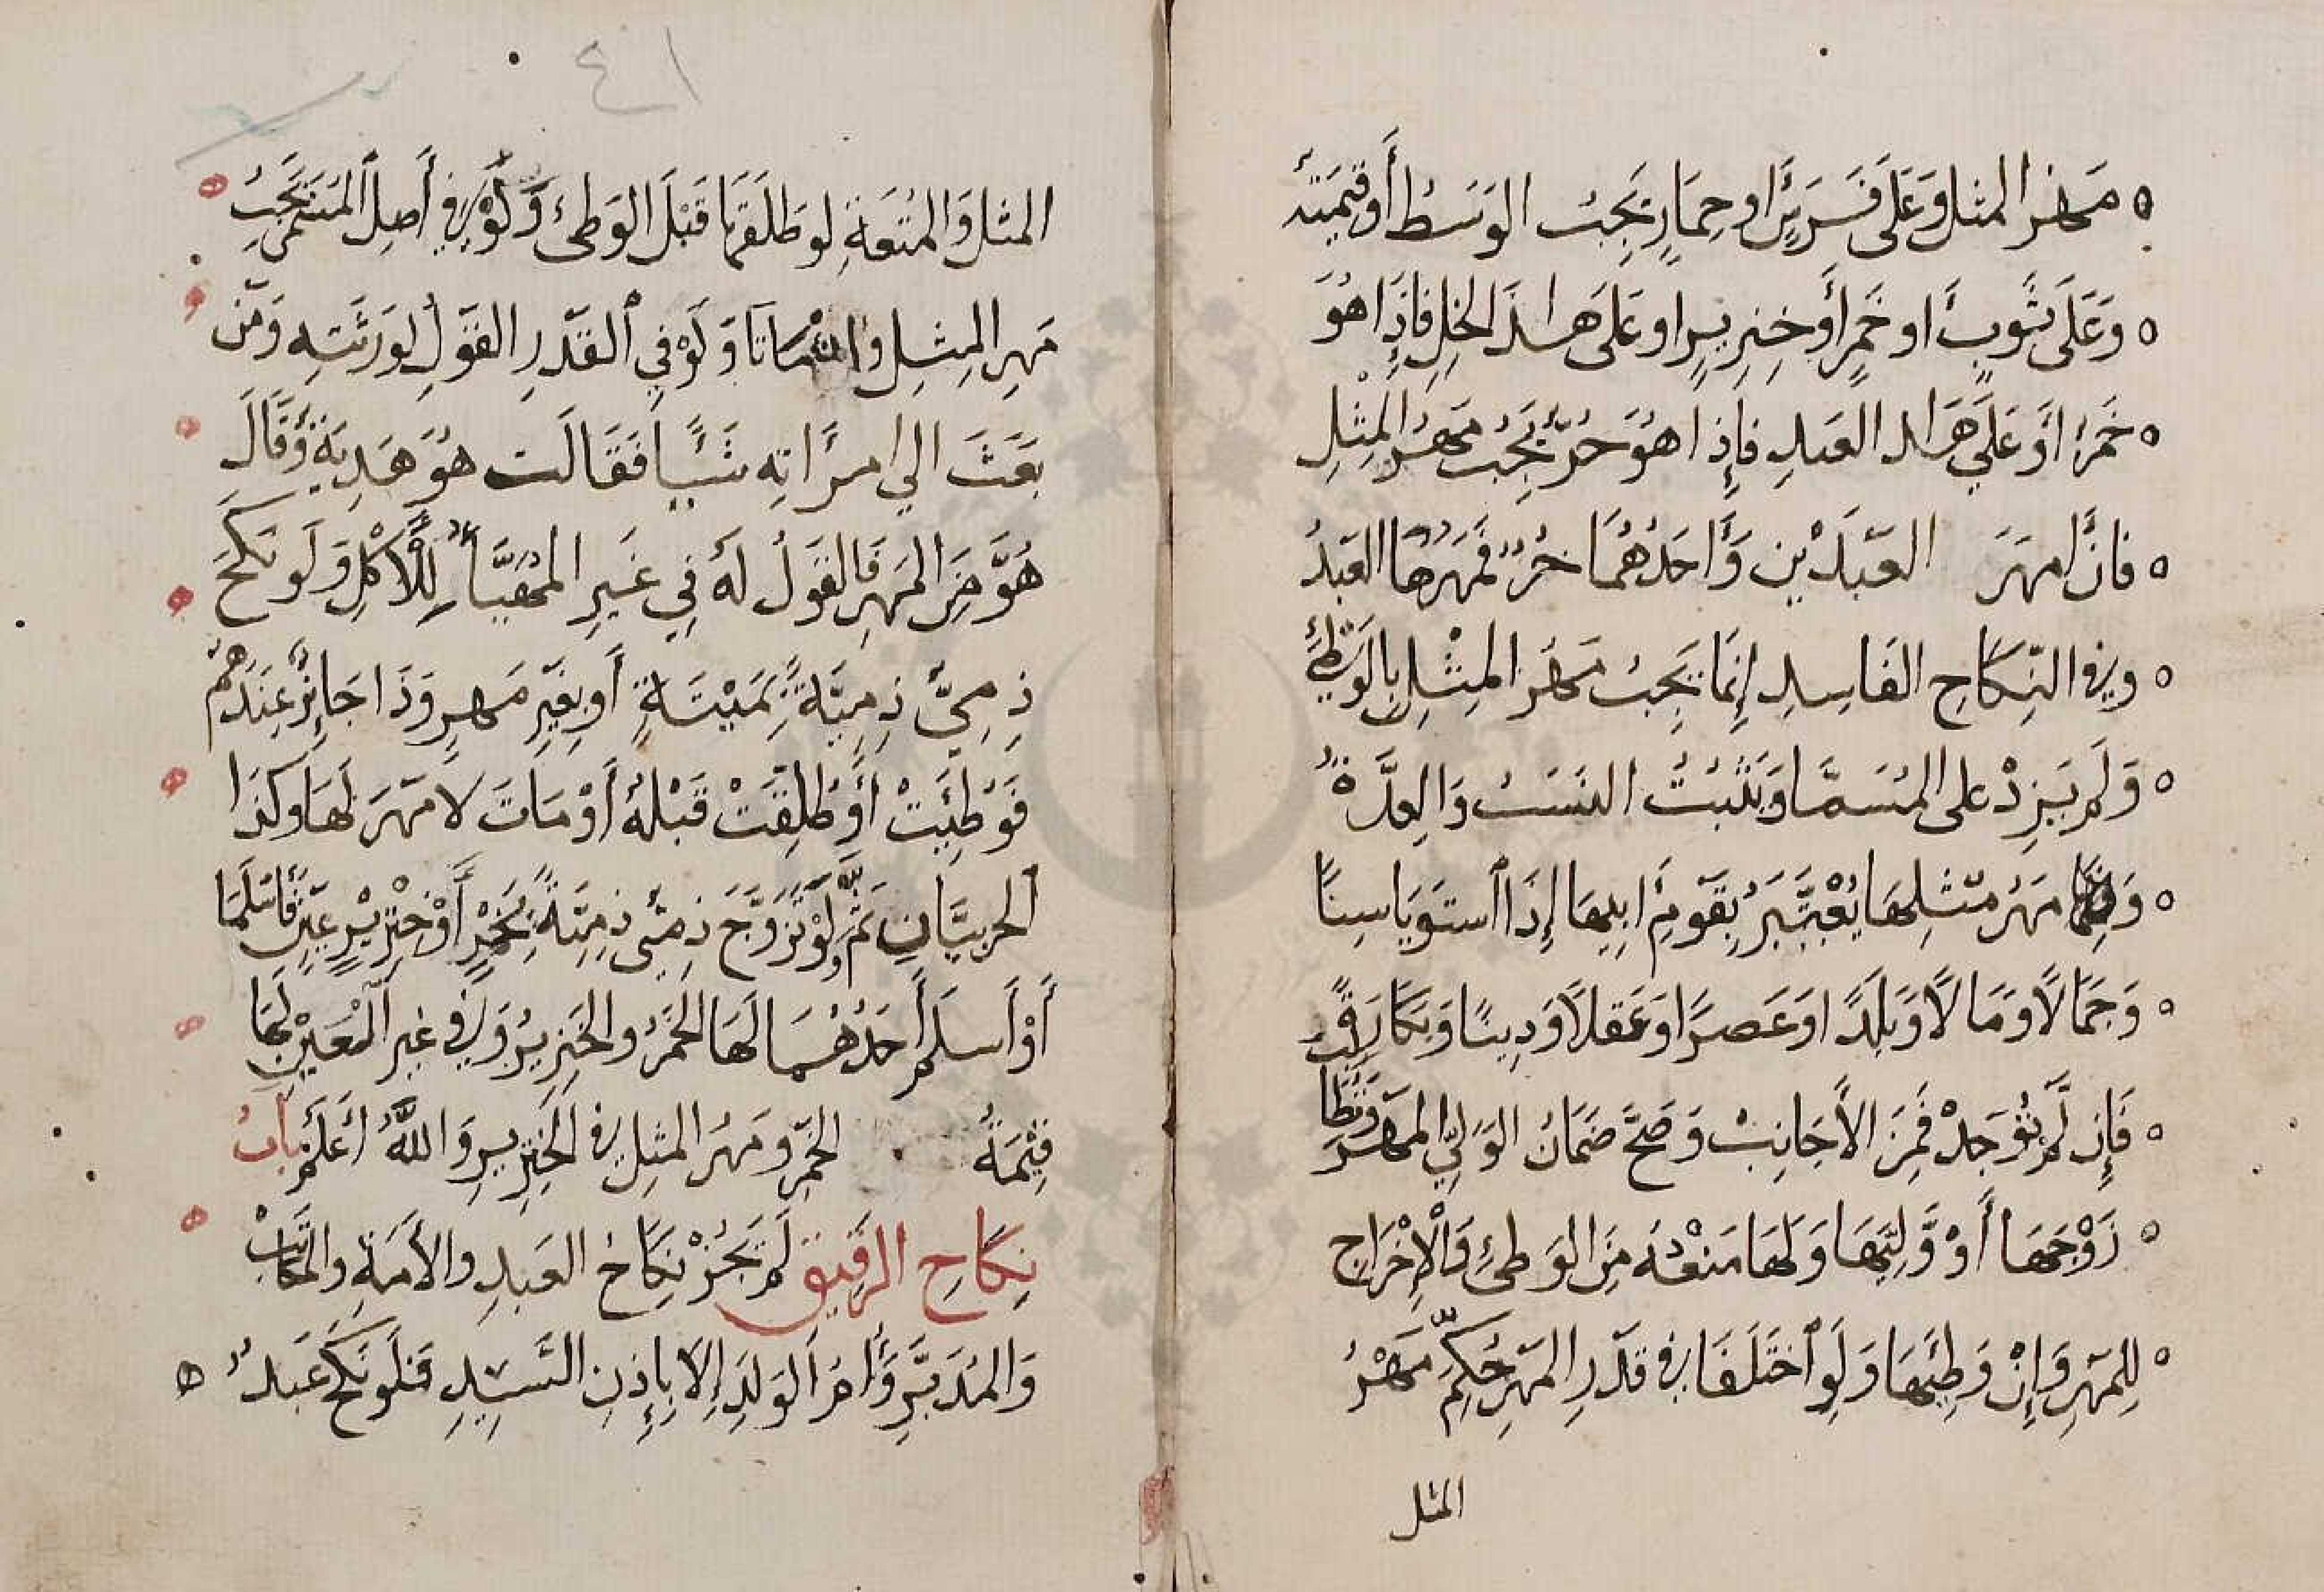 مَهْرُ المثل وَعَلَى فَرَسٍ او حِمَارٍ يَجِبُ الوَسَطُ أَو قِيمَتَهُ
وَعَلَى ثَوبٍ او خَمْرٍ أَو خِنزِيرٍ او عَلَى هذَا الخَلِ فَاِذَا هُوَ
خَمْرٌ اَو عَلَي هَذا العَبدِ فَإِذا هُوَ حُرٌّ يَجِبُ مَهْرُ المِثْلِ
فَانْ امهَرَ العَبدَيْنِ وَأَحَدُهُمَا حُرٌّ فَمَهرُهَا العَبدُ
وفي النِّكَاحِ الفَاسِدِ إِنَّمَا يَجِبُ مَهْرُ المِثْلِ بِالوَطْئِ
وَلَم يَزِدْ على المُسَمَّا وَيَثْبُتُ النَسَبُ وَالعِدَّةُ
وَ مَهرُ مثلِهَا يُعْتَبَرُ بِقَومِ ابِيهَا إِذَا ٱستَوَيَا سِنًا
وَجَمَالًا وَمَالًا وَبَلَدًا وَعَصرًا وَعَقلًا وَدِينًا وَبَكَارَةً
فَإِن لَّمْ تُوجَدْ فَمِنَ الأَجَانِبْ وَصَحَّ ضَمَانُ الوَلِيِّ المَهْرَ وَتُطَا
زَوْجَهَا أَوْ وَّلِيَّهَا وَلَهَا مَنْعُهُ مِنَ الوَطئِ وَالْإِخْرَاجِ
لِلمَهرِ وَإِنْ وَطِئَهَا وَلَوِ ٱختَلَفَا فِي قَدْرِ المَهْرِ حُكِّمَ مَهْرُ
المثل
٤١
المثل وَالمُتعَةِ لو طَلَّقَهَا قَبْلَ الوَطئ وَلَوْ فِي أَصلِ ٱلمُسَمَّى يَجِبُ
مَهرِ المِثلِ وان مَاتَا وَلَوْ فِي ٱلقَدْرِ القَوْلُ لوَرَثَتِهِ وَمَن
بَعَثَ الي امرَأَتِه شَيًّا فَقَالَت هُوَ هَدِيَةٌ وَقَالَ
هُوَ مِنَ المَهرِ فَالقَولُ لَهُ فِي غَيرِ المُهَيَّأِ لِلْأَكْلِ وَلَو نَكَحَ
ذِمِيٌّ ذِمِيَّةً بِمَيْتَةٍ أَو بِغَيرِ مَهرٍ وَذَا جَائِزٌ عِندَهُمْ
فَوُطِئَتْ أَوْ طُلِقَتْ قَبْلَهُ أَوْ مَاتَ لا مَهْرَ لَهَا وَكَذَا
ٱلحَربِيَّانِ ثَمَّ وَلَوْ تَزَوَّجَ ذِمِيٌّ ذِمِيَّةً بِخَمْرٍ أَوْ خِنْزِيْرٍ عَيْنٍ فَأَسْلَمَا
أَوْ أَسلَمَ أَحَدُهُمَا لَهَا الخَمْرُ والخِنزِيرُ وَفِي غيرِ المُعَيَّنِ لَهَا
قِيْمَةُ الخَمْرِ وَمَهرُ المثلِ فِي الخِنزِيرِ وَاللَّهُ أَعْلَمُ بابُ
نِكَاحِ الرَّقِيقِ لَمْ يَجُزْ نِكَاحُ العَبدِ والأَمَةِ والمُكَاتَبْ
وَالمُدَبَّرِ وَأُمِّ الوَلَدِ إِلا بِإِذنِ السَّيِدِ فَلَو نَكَحَ عَبدٌ